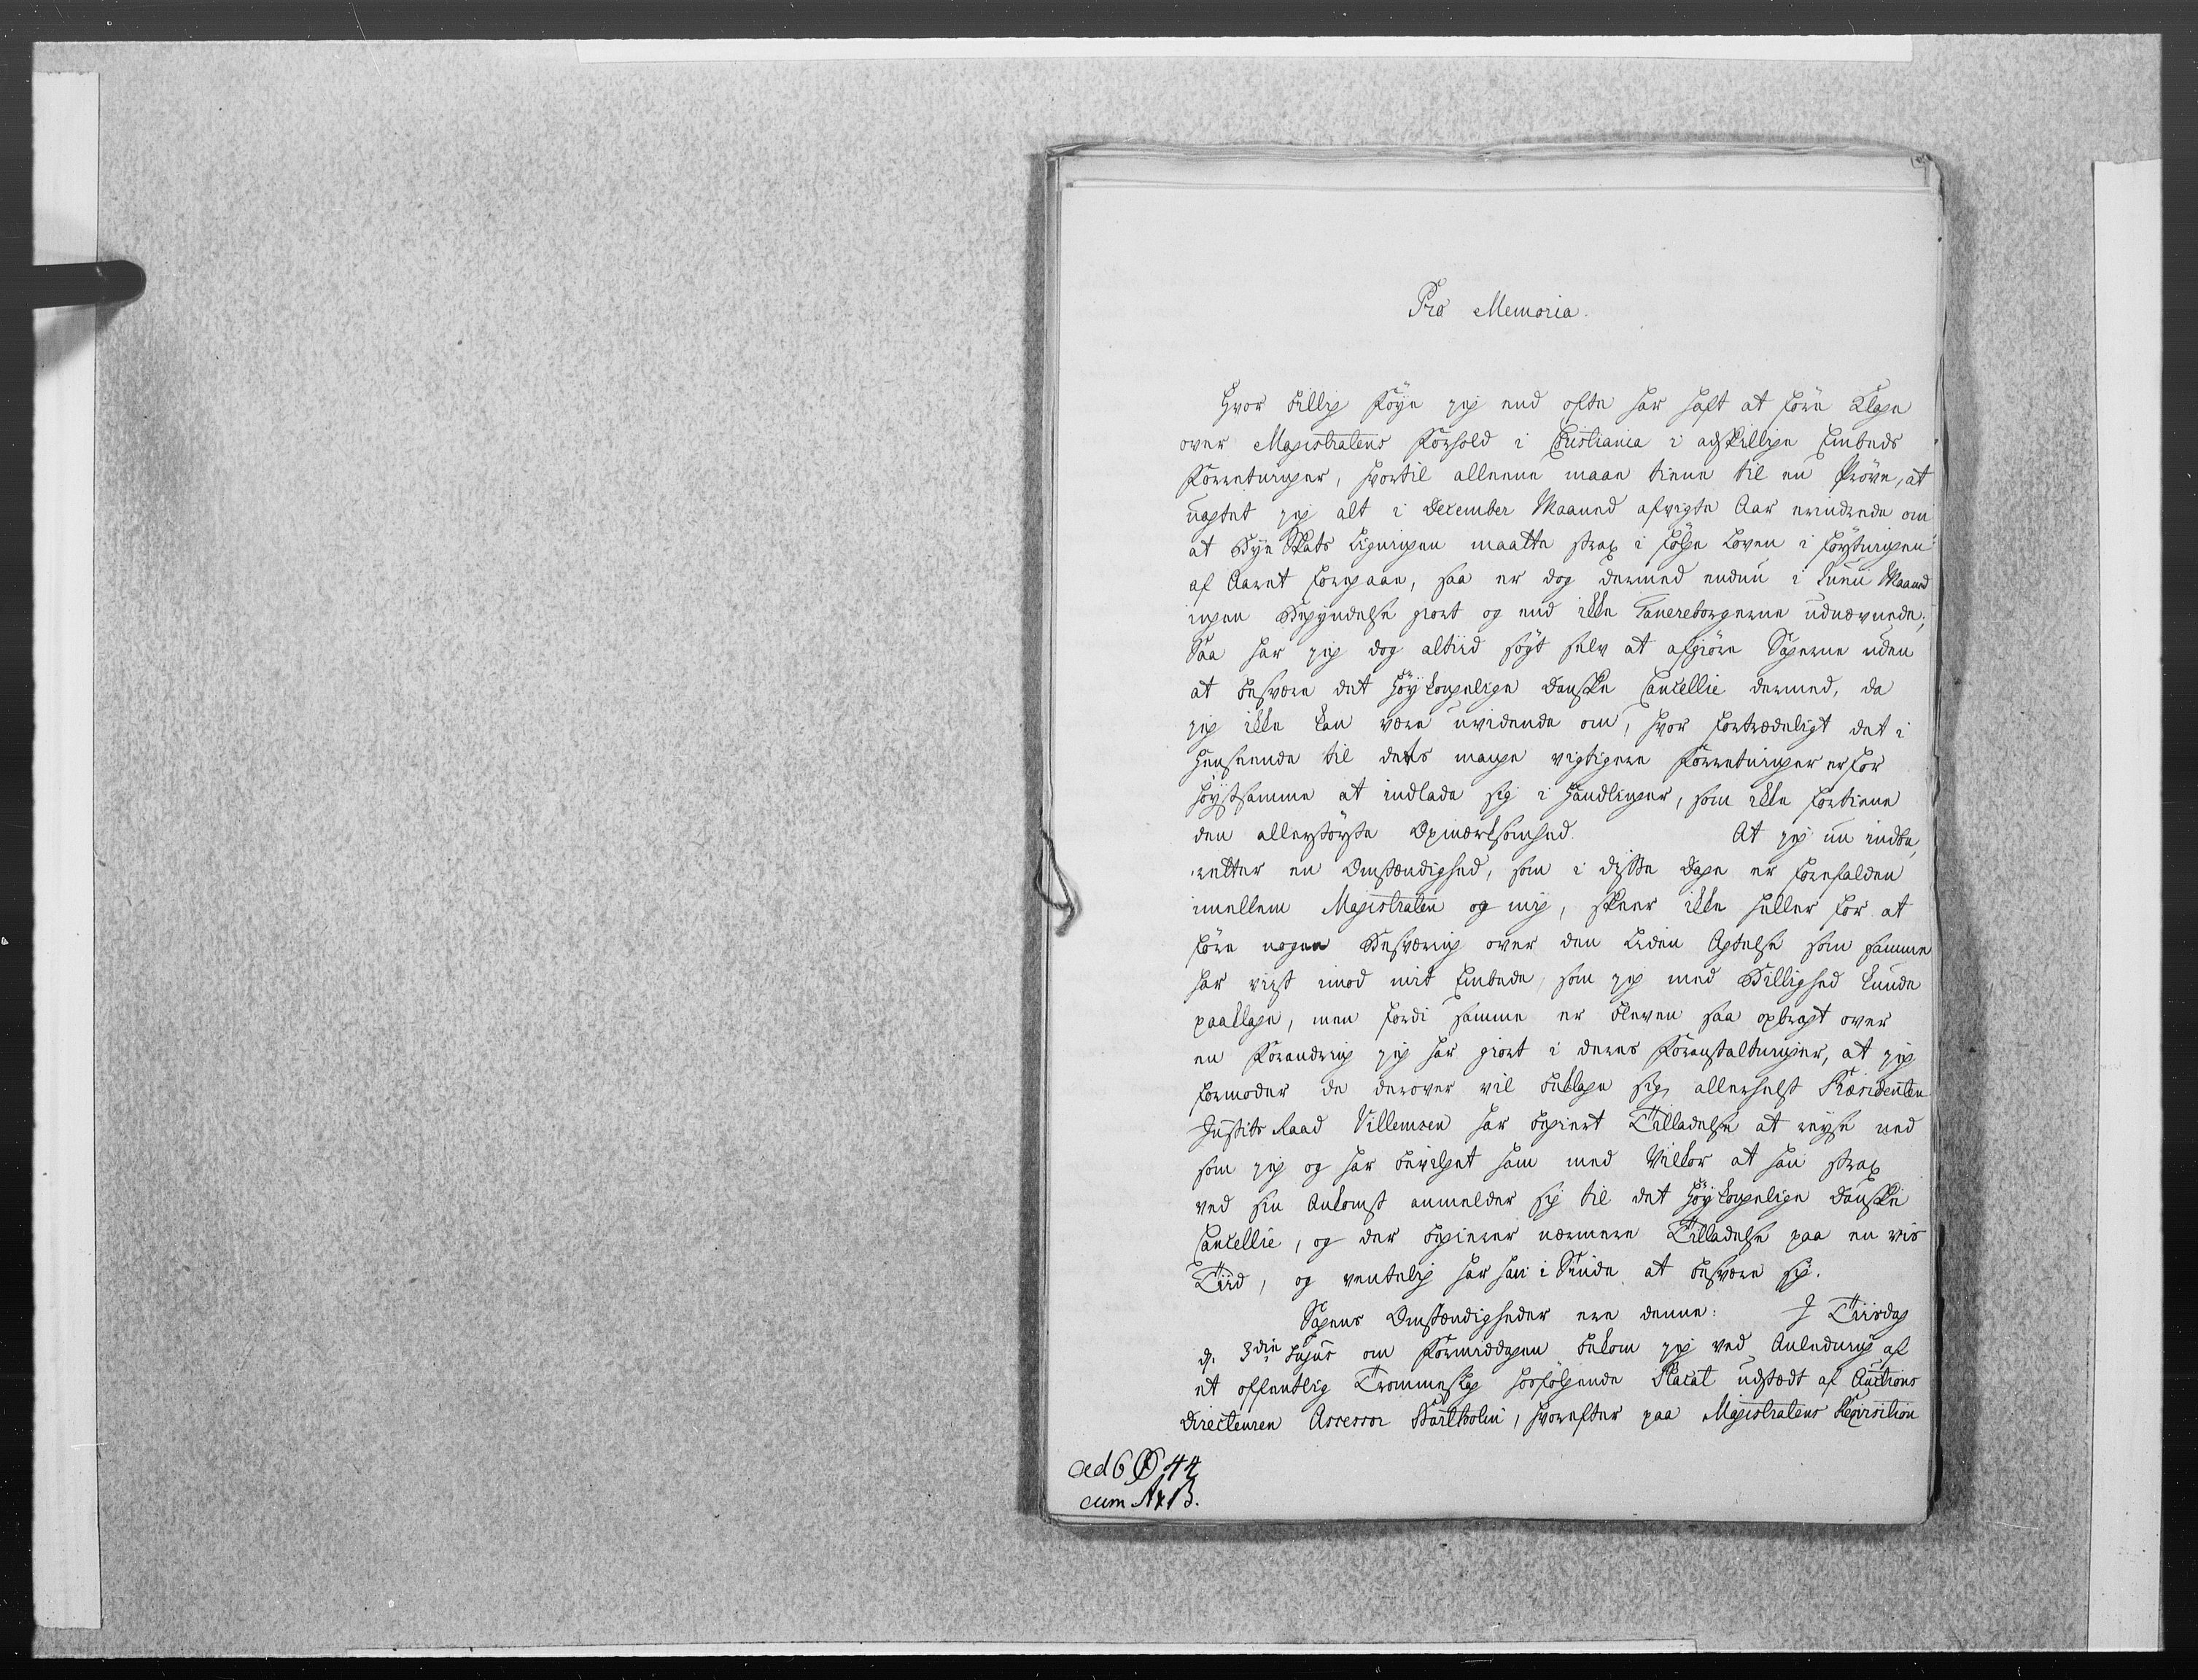 Pro Memoria.
Hvor billig Föye jeg end ofte har haft at före Klage
over Magistratens Forhold i Christiania i adskillige Embeds
Forretninger, hvortil alleene maae tiene til en Pröve, at
uagtet jeg alt i December Maaned afvigte Aar erindrede om
at Bye Skats Ligningen maatte strax i Fölge Loven i Förstningen
af Aaret foregaae, saa er dog dermed endnu i Junii Maaned
ingen Begyndelse giort og end ikke Taxereborgerne udnævnede;
Saa har jeg dog altiid sögt selv at afgiöre Sagerne uden
at besvære det Höy Kongelige Danske Cancellie dermed, da
jeg ikke kan være uvidende om, hvor fortrædeligt det i
Henseende til dets mange vigtigere Forretninger er for
höystsamme at indlade sig i Handlinger, som ikke fortiene
den allerstörste Opmærksomhed. At jeg nu indbe,
retter en Omstændighed, som i disse Dage er forefalden
imellem Magistraten og mig, skeer ikke heller for at
före nogen Besværing over den Liden Agtelse som samme
har viist imod mit Embede, som jeg med Billighed kunde
paaklage, men fordi samme er bleven saa opbragt over
en Forandring jeg har giort i deres Foranstaltninger, at jeg
formoder de derover vil beklage sig, allerhelst Præsidenten
Justits Raad Villemsen har begiert Tilladelse at reyse ned
som jeg og har bevilget ham med Vilkor at han strax
ved sin Ankomst anmelder sig til det Höy Kongelige Danske
Cancellie, og der begierer nærmere Tilladelse paa en vis
Tiid, og ventelig har han i Sinde at besvære sig.
Sagens Omstændigheder ere denne: I Tiirsdag
d. 3die hujus om Formiddagen bekom jeg ved Anledning af
et offentlig Trommeslag hosfölgende Placat udstædt af Auctions
Directeuren Assessor Bartholin, hvorefter paa Magistratens Reqvisition
ad 6 44
cum A & B.